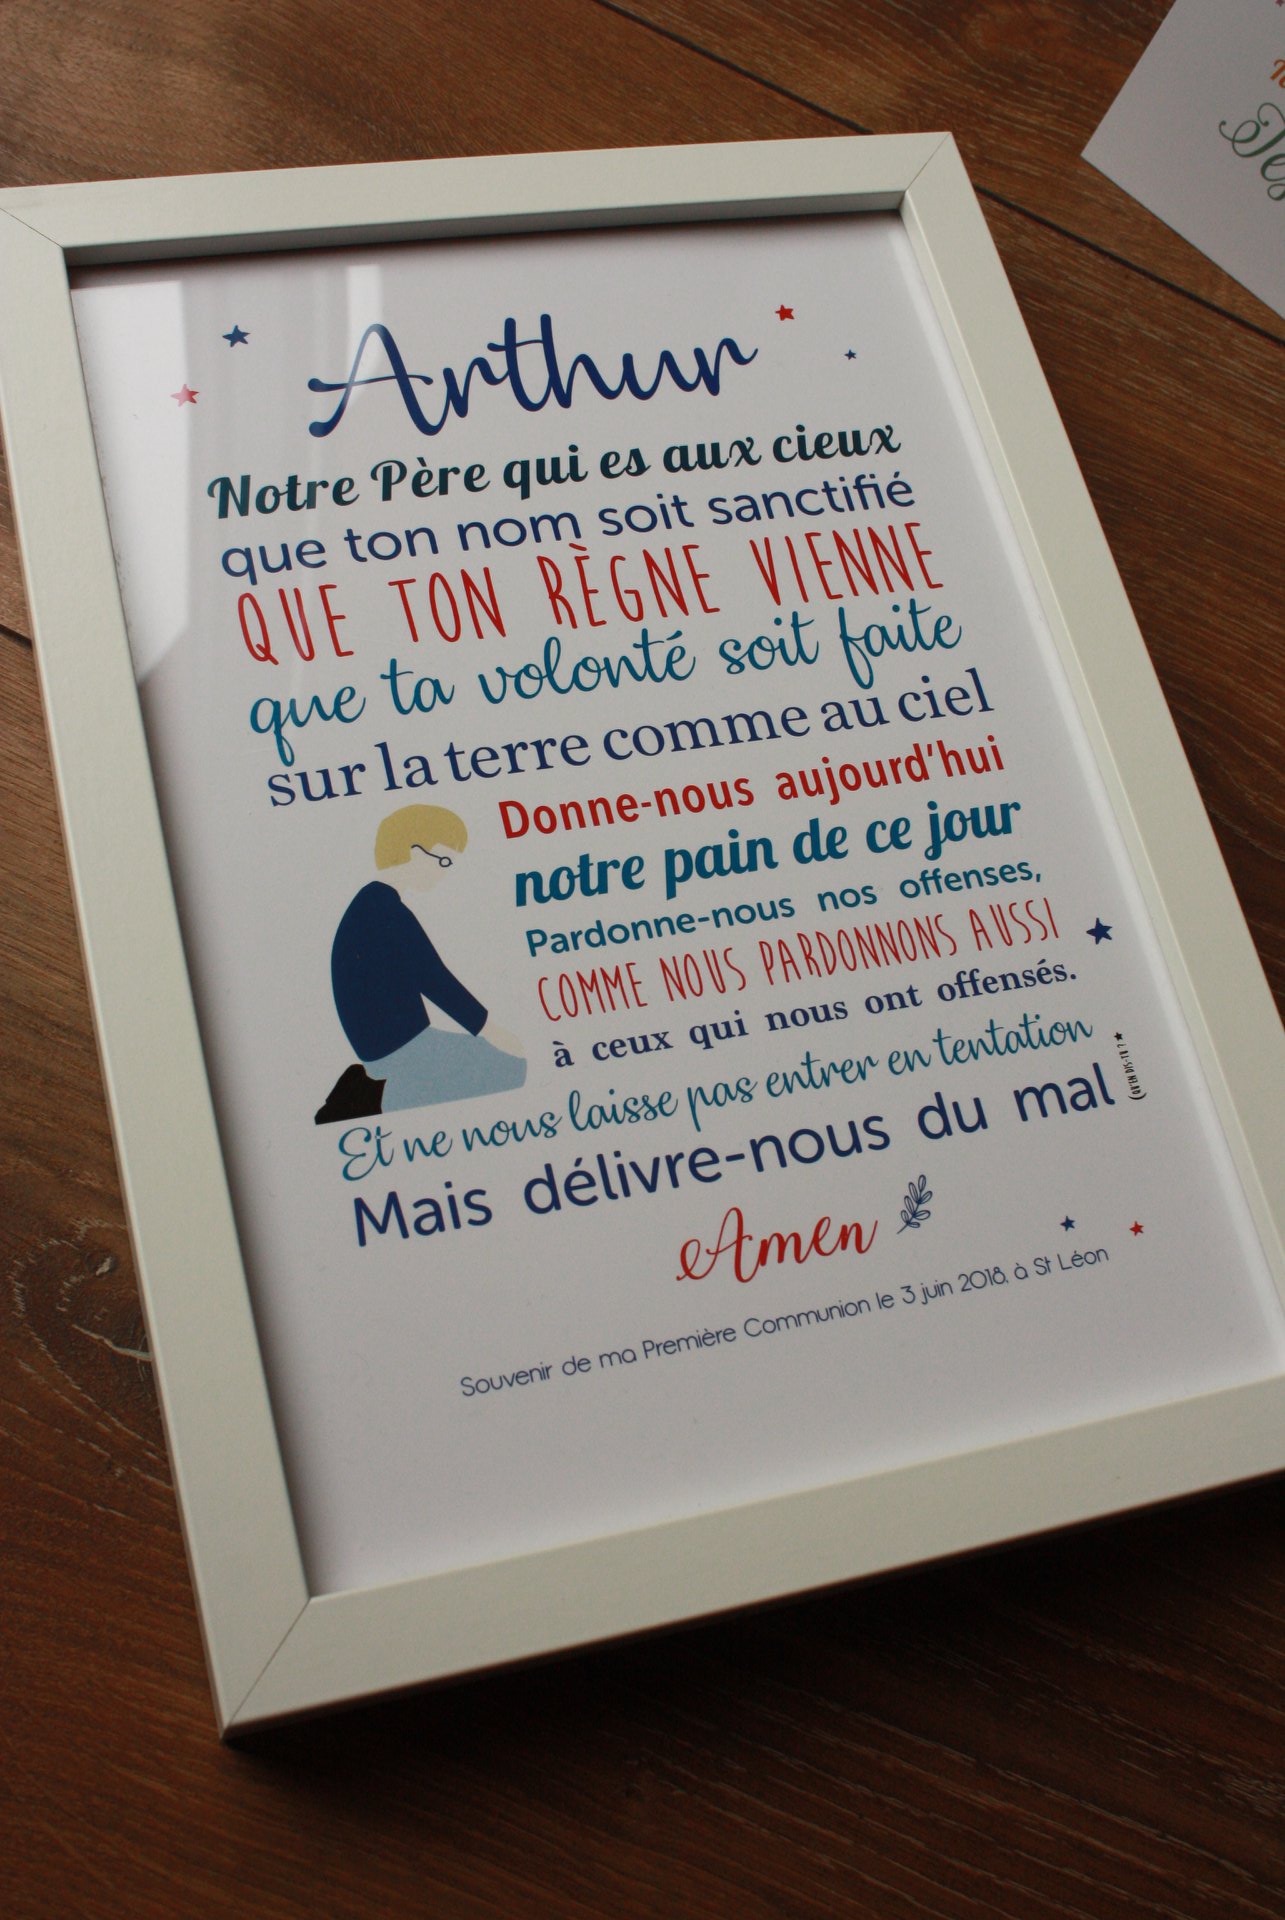 Arthur
Notre Père qui es aux cieux
que ton nom soit sanctifié
QUE TON RÈGNE VIENNE
que ta volonté soit faite
sur la terre comme au ciel
Donne-nous aujourd'hui
notre pain de ce jour
Pardonne-nous nos offenses,
COMME NOUS PARDONNONS AUSSI
à ceux qui nous ont offensés.
Et ne nous laisse pas entrer en tentation
Mais délivre-nous du mal
Amen
Souvenir de ma Première Communion le 3 juin 2018, à St Léon